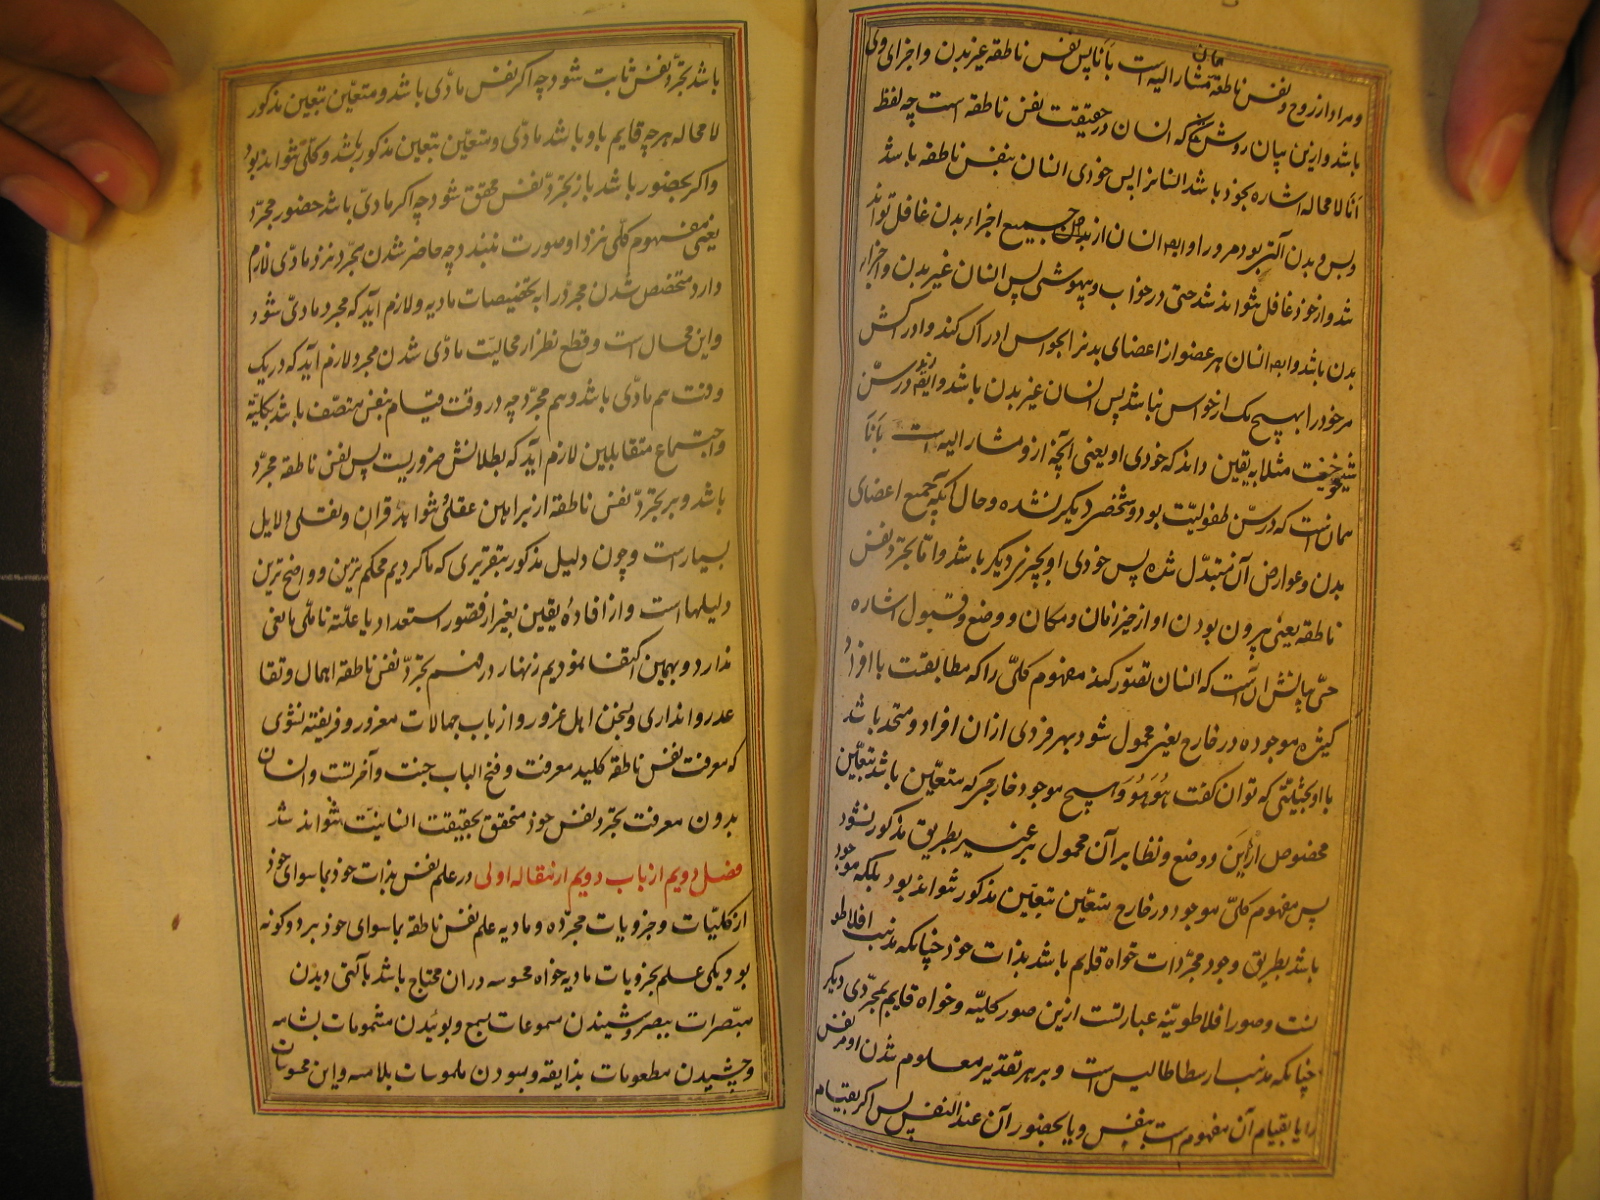 و مراد از روح و نفس ناطقه همان مشار الیه است بأنا پس نفس ناطقه غیر بدن و اجزای ولی
باشد و ازین بیان روشن که انسان در حقیقت نفس ناطقه است چه لفظ
أنا لا محاله اشاره بخود باشد انسانرا پس خودی انسان بنفس ناطقه باشد
و بس و بدن آلتی بود مر او را و ایضا انسان از بدن جمیع اجزاء بدن غافل تواند
شد و از خود غافل نتواند شد حتی در خواب و بیهوشی پس انسان غیر بدن و اجزاء
بدن باشد و ایضا انسان هر عضو از اعضای بدنرا بحواس ادراک کند و ادراکش
مر خود را بهیچ یک از حواس نباشد پس انسان غیر بدن باشد و ایضا زید در سن
شیخوخیت مثلا به یقین داند که خودی او یعنی آنچه ازو مشار الیه است بأنا
همانست که در سن طفولیت بود و شخص دیگر نشده و حال آنکه جمیع اعضای
بدن و عوارض آن متبدل شده پس خودی او بچیز دیگر باشد و اما تجرد نفس
ناطقه یعنی بیرون بودن او از حیز زمان و مکان و وضع و قبول اشاره
حسی بیانش آنست که انسان تصور کند مفهوم کلی را که مطابقت با افراد
کثیره موجوده در خارج یعنی محمول شود بهر فردی از ان افراد و متحد باشد
با او بحیثیتی که توان گفت هو هو و هیچ موجود خارجی که متعین باشد بتعین
مخصوص از این و وضع و نظایر آن محمول بر غیر بطریق مذکور نشود
پس مفهوم کلی موجود در خارج متعین بتعین مذکور نتواند بود بلکه موجود
باشد بطریق وجود مجردات خواه قایم باشد بذات خود چنانکه مذهب افلاطو
نست و صور افلاطونیه عبارتست ازین صور کلیه و خواه قایم بمجردی دیگر
چنانکه مذهب ارسطاطالیس است و بر هر تقدیر معلوم شدن او مر نفس
را یا بقیام آن مفهوم است بنفس و یا بحضور آن عند النفس پس اگر بقیام
باشد تجرد نفس ثابت شود چه اگر نفس مادی باشد و متعین بتعین مذکور
لا محاله هر چه قایم باو باشد مادی و متعین بتعین مذکور باشد و کلی نتواند بود
و اگر بحضور باشد باز تجرد نفس محقق شود چه اگر مادی باشد حضور مجرد
یعنی مفهوم کلی نزد او صورت نبندد چه حاضر شدن مجرد نزد مادی لازم
دارد متخصص شدن مجرد را به تخصیصات مادیه و لازم آید که مجرد مادی شود
و این محال است و قطع نظر از محالیت مادی شدن مجرد لازم آید که در یک
وقت هم مادی باشد و هم مجرد چه در وقت قیام بنفس متصف باشد بکلیة
و اجتماع متقابلین لازم آید که بطلانش ضروریست پس نفس ناطقه مجرد
باشد و بر تجرد نفس ناطقه از براهین عقلی شواهد قران و نقلی دلایل
بسیارست و چون دلیل مذکور بتقریری که ما کردیم محکم ترین و واضح ترین
دلیلهاست و از افادۀ یقین بغیر از قصور استعداد یا علت ناملی مانعی
ندارد و بهمین اکتفا نمودیم زنهار در فهم تجرد نفس ناطقه اهمال و تقا
عد روا نداری و بسخن اهل غرور و ارباب جهالات مغرور و فریفته نشوی
که معرفت نفس ناطقه کلید معرفت و فتح الباب جنت و آخرتست و انسان
بدون معرفت تجرد نفس خود متحقق بحقیقت انسانیت نتواند شد
فصل دویم از باب دویم از مقاله اولی در علم نفس بذات خود بماسوای خود
از کلیات و جزویات مجرده و مادیه علم نفس ناطقه بماسوای خود بر دو گونه
بود یکی علم بجزویات مادیه خواه محسوسه در ان محتاج باشد بآلتی دیدن
مبصرات ببصر و شنیدن مسموعات بسمع و بوئیدن مشمومات بشامه
و چشیدن مطعومات بذایقه و بسودن ملموسات بلامسه و این محسوسات